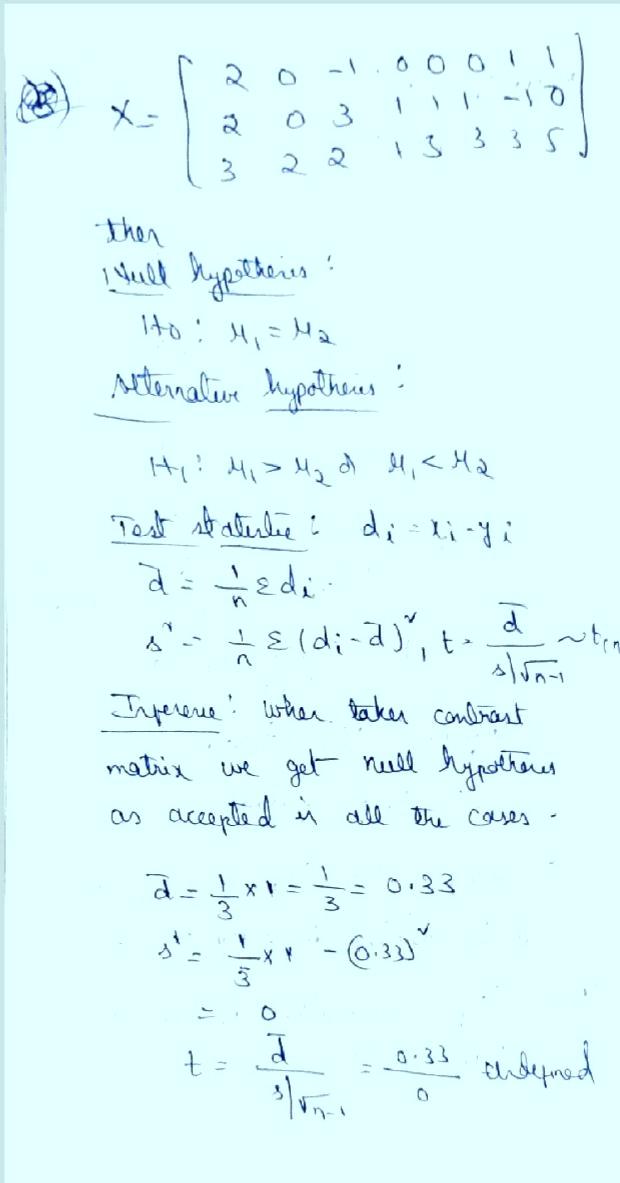 X = [ 2 0 -1 0 0 0 1 1
2 0 3 1 1 1 -1 0
3 2 2 1 3 3 3 5 ]
then
Null hypothesis :
H0 : μ₁ = μ₂
Alternative hypothesis :
H₁ : μ₁ > μ₂ or μ₁ < μ₂
Test statistic : di = xi - yi
d̄ = 1/n Σdi.
s² = 1/n Σ(di - d̄)², t = d̄ / s/√n-1 ~ t(n
Inference : when taken contrast
matrix we get null hypothesis
as accepted in all the cases.
d̄ = 1/3 × 1 = 1/3 = 0.33
s² = 1/3 × 1 - (0.33)²
= 0
t = d̄ / s/√n-1 = 0.33 / 0 undefined